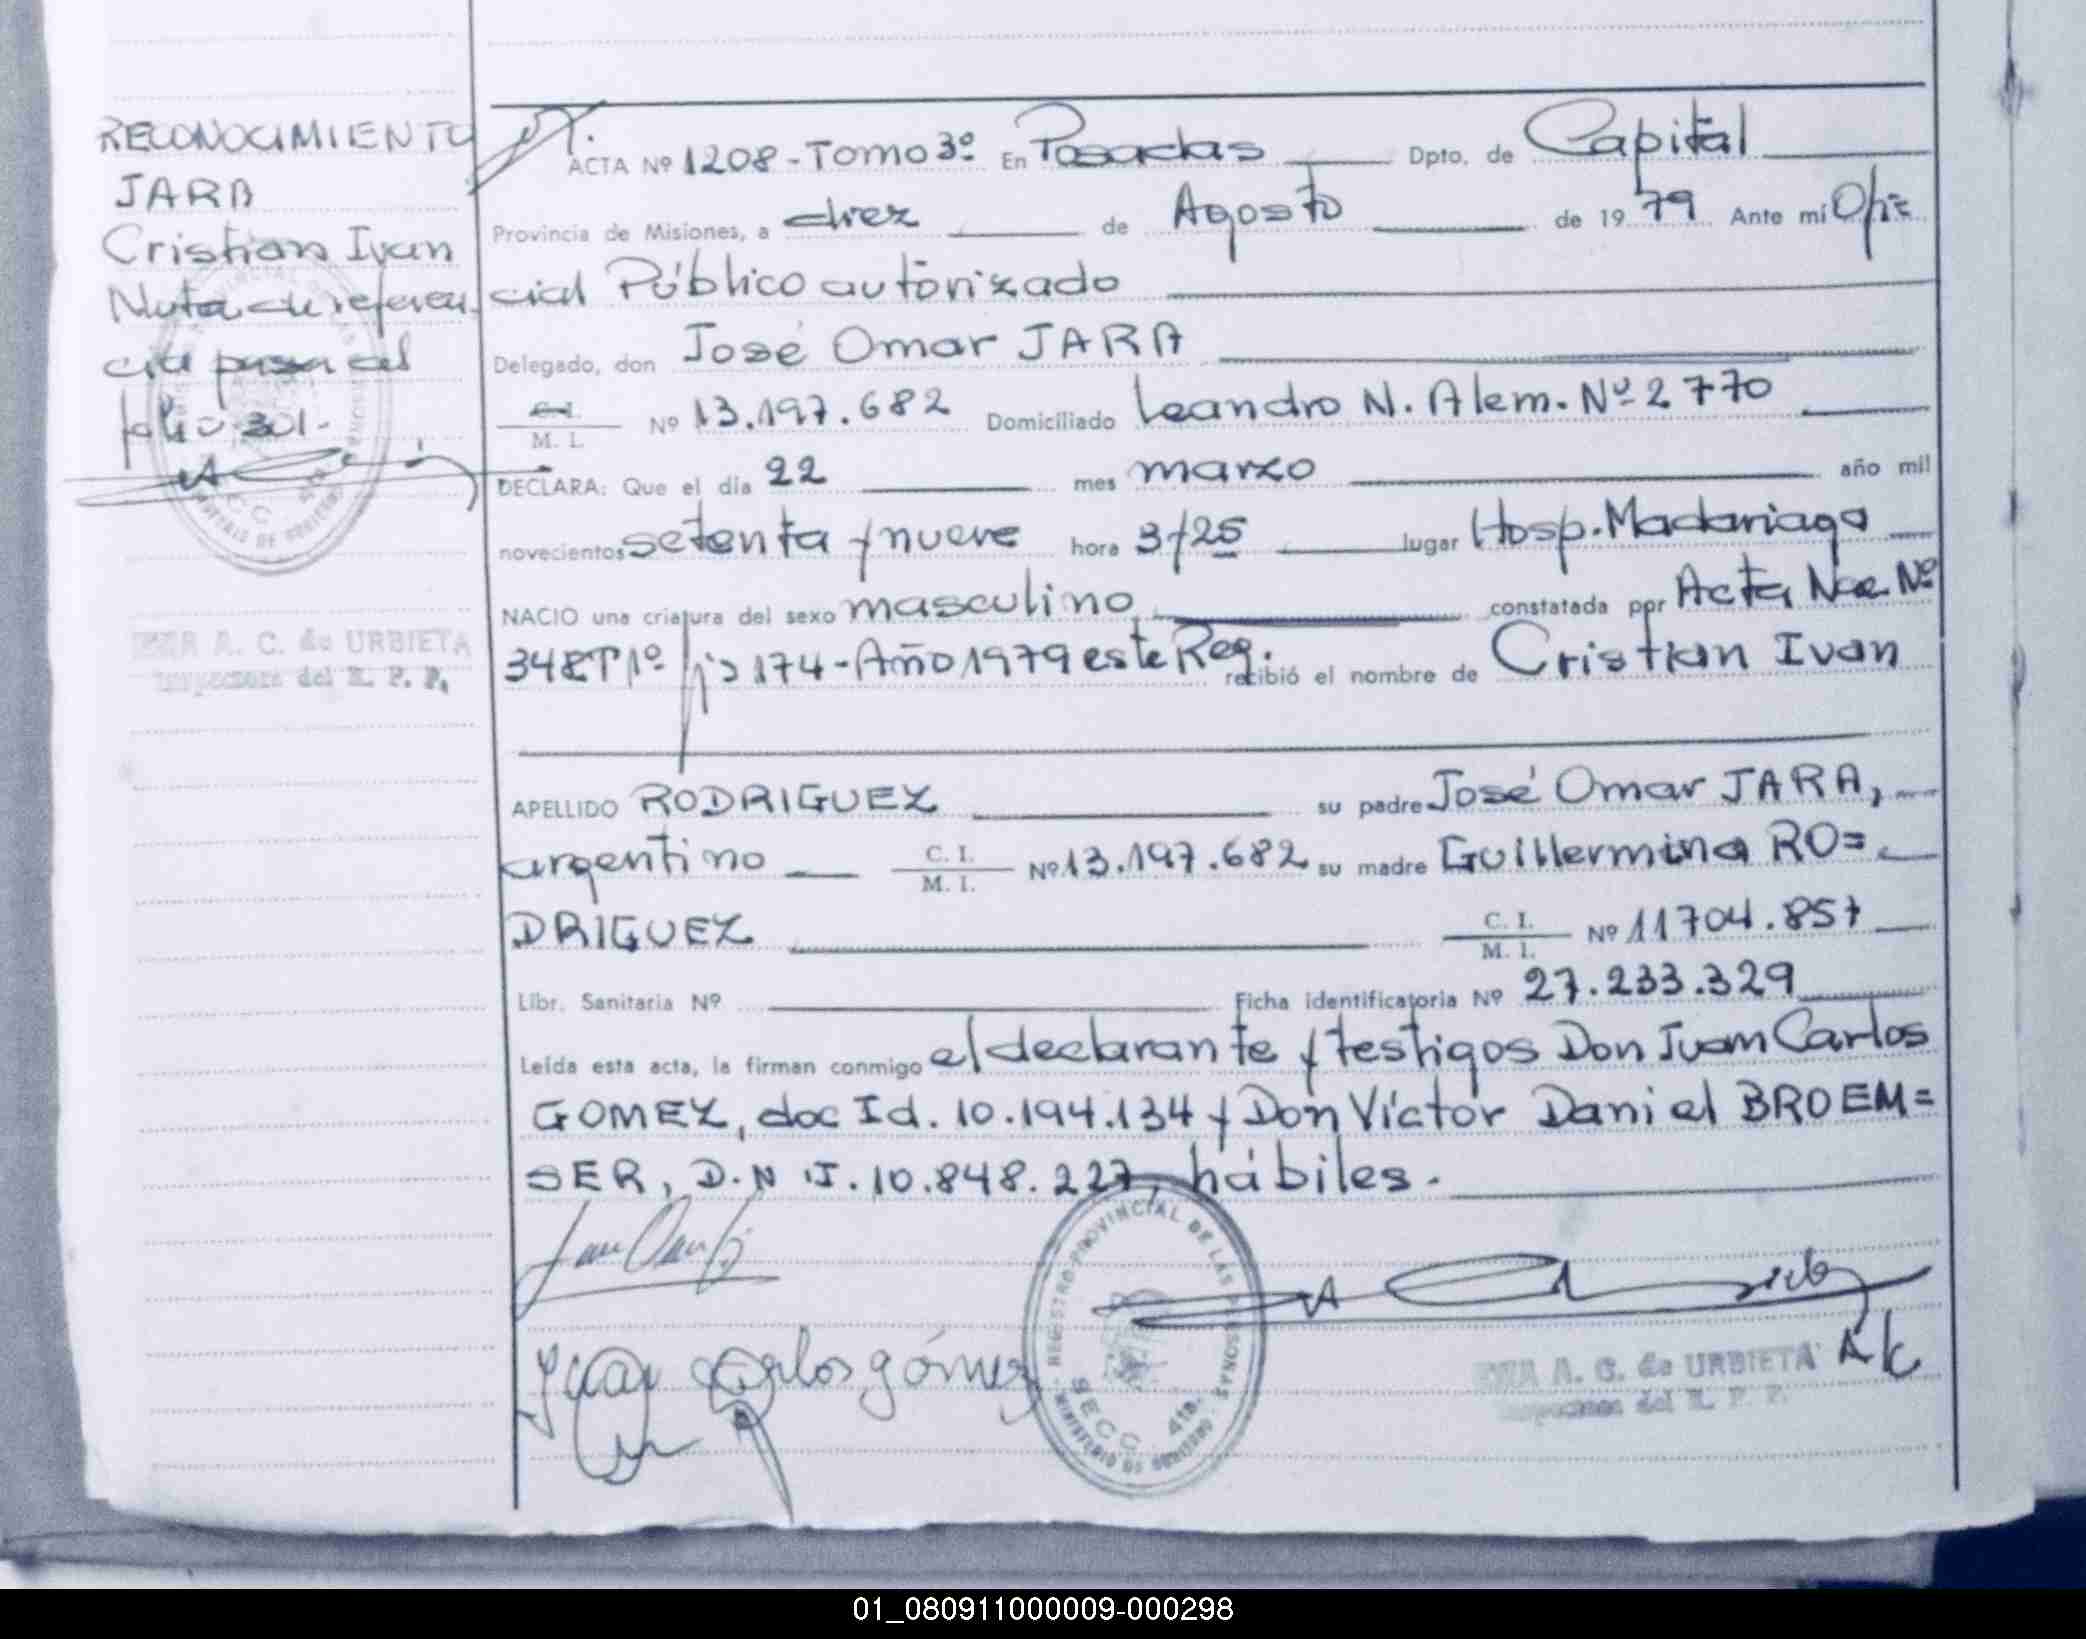 RECONOCIMIENTO
JARA
Cristian Ivan
Nota de referen
cia pasa al
folio 301.-
A. C. de URBIETA
Inspectora del R. P. P.
ACTA Nº 1208-Tomo 3º En Posadas Dpto. de Capital
Provincia de Misiones, a diez de Agosto de 1979 Ante mí Ofi=
cial Público autorizado
Delegado, don José Omar JARA
C. I. / M. I. Nº 13.197.682 Domiciliado Leandro N. Alem. Nº 2770
DECLARA: Que el día 22 mes marzo año mil
novecientos setenta y nueve hora 3y25 lugar Hosp. Madariaga
NACIO una criatura del sexo masculino, constatada por Acta Nac Nº
348 Tº1º fº 174-Año 1979 este Reg. recibió el nombre de Cristian Ivan
APELLIDO RODRIGUEZ su padre José Omar JARA,
argentino C. I. / M. I. Nº 13.197.682 su madre Guillermina RO=
DRIGUEZ C. I. / M. I. Nº 11704.857
Libr. Sanitaria Nº Ficha identificatoria Nº 27.233.329
Leída esta acta, la firman conmigo el declarante y testigos Don Juan Carlos
GOMEZ, doc Id. 10.194.134 y Don Víctor Daniel BROEM=
SER, D.N.I. 10.848.227, hábiles.
Juan Carlos gómez
REGISTRO PROVINCIAL DE LAS PERSONAS
SECC 4ta.
MINISTERIO DE GOBIERNO
A. C. de URBIETA
Inspectora del R. P. P.
01_080911000009-000298